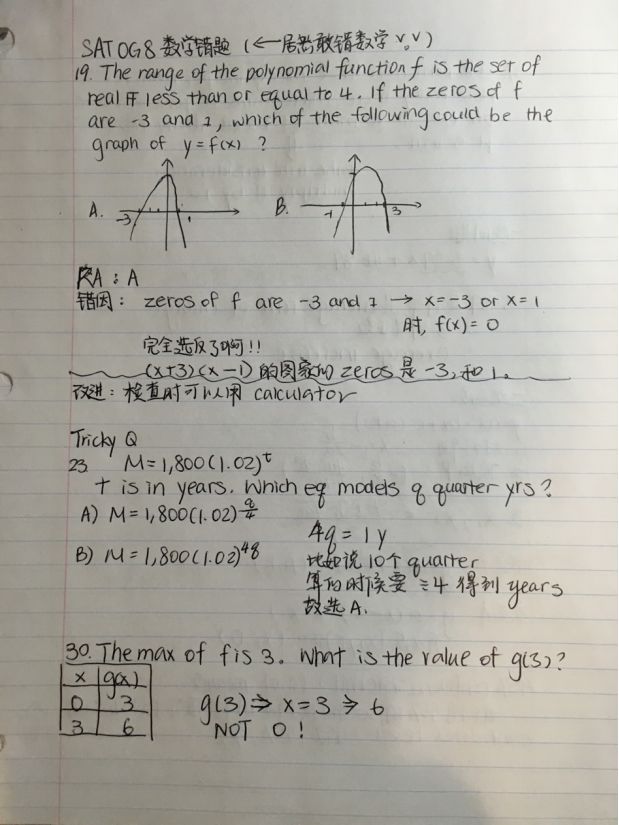 SAT OG8 数学错题 (←居然敢错数学 v。v)
19. The range of the polynomial function f is the set of
real # less than or equal to 4. If the zeros of f
are -3 and 1, which of the following could be the
graph of y=f(x) ?
A. -3 1 B. -1 3
A: A
错因: zeros of f are -3 and 1 → x=-3 or x=1
时, f(x)=0
完全选反了啊!!
(x+3)(x-1)的图象的 zeros 是 -3, 和 1。
改进: 检查时可以用 calculator
Tricky Q
23 M=1,800(1.02)^t
t is in years. Which eq models q quarter yrs?
A) M=1,800(1.02)^(q/4)
4q = 1y
B) M=1,800(1.02)^48
比如说10个 quarter
算的时候要 ÷4 得到 years
故选A.
30. The max of f is 3. What is the value of g(3)?
x g(x)
0 3
3 6
g(3) ⇒ x=3 ⇒ 6
NOT 0 !